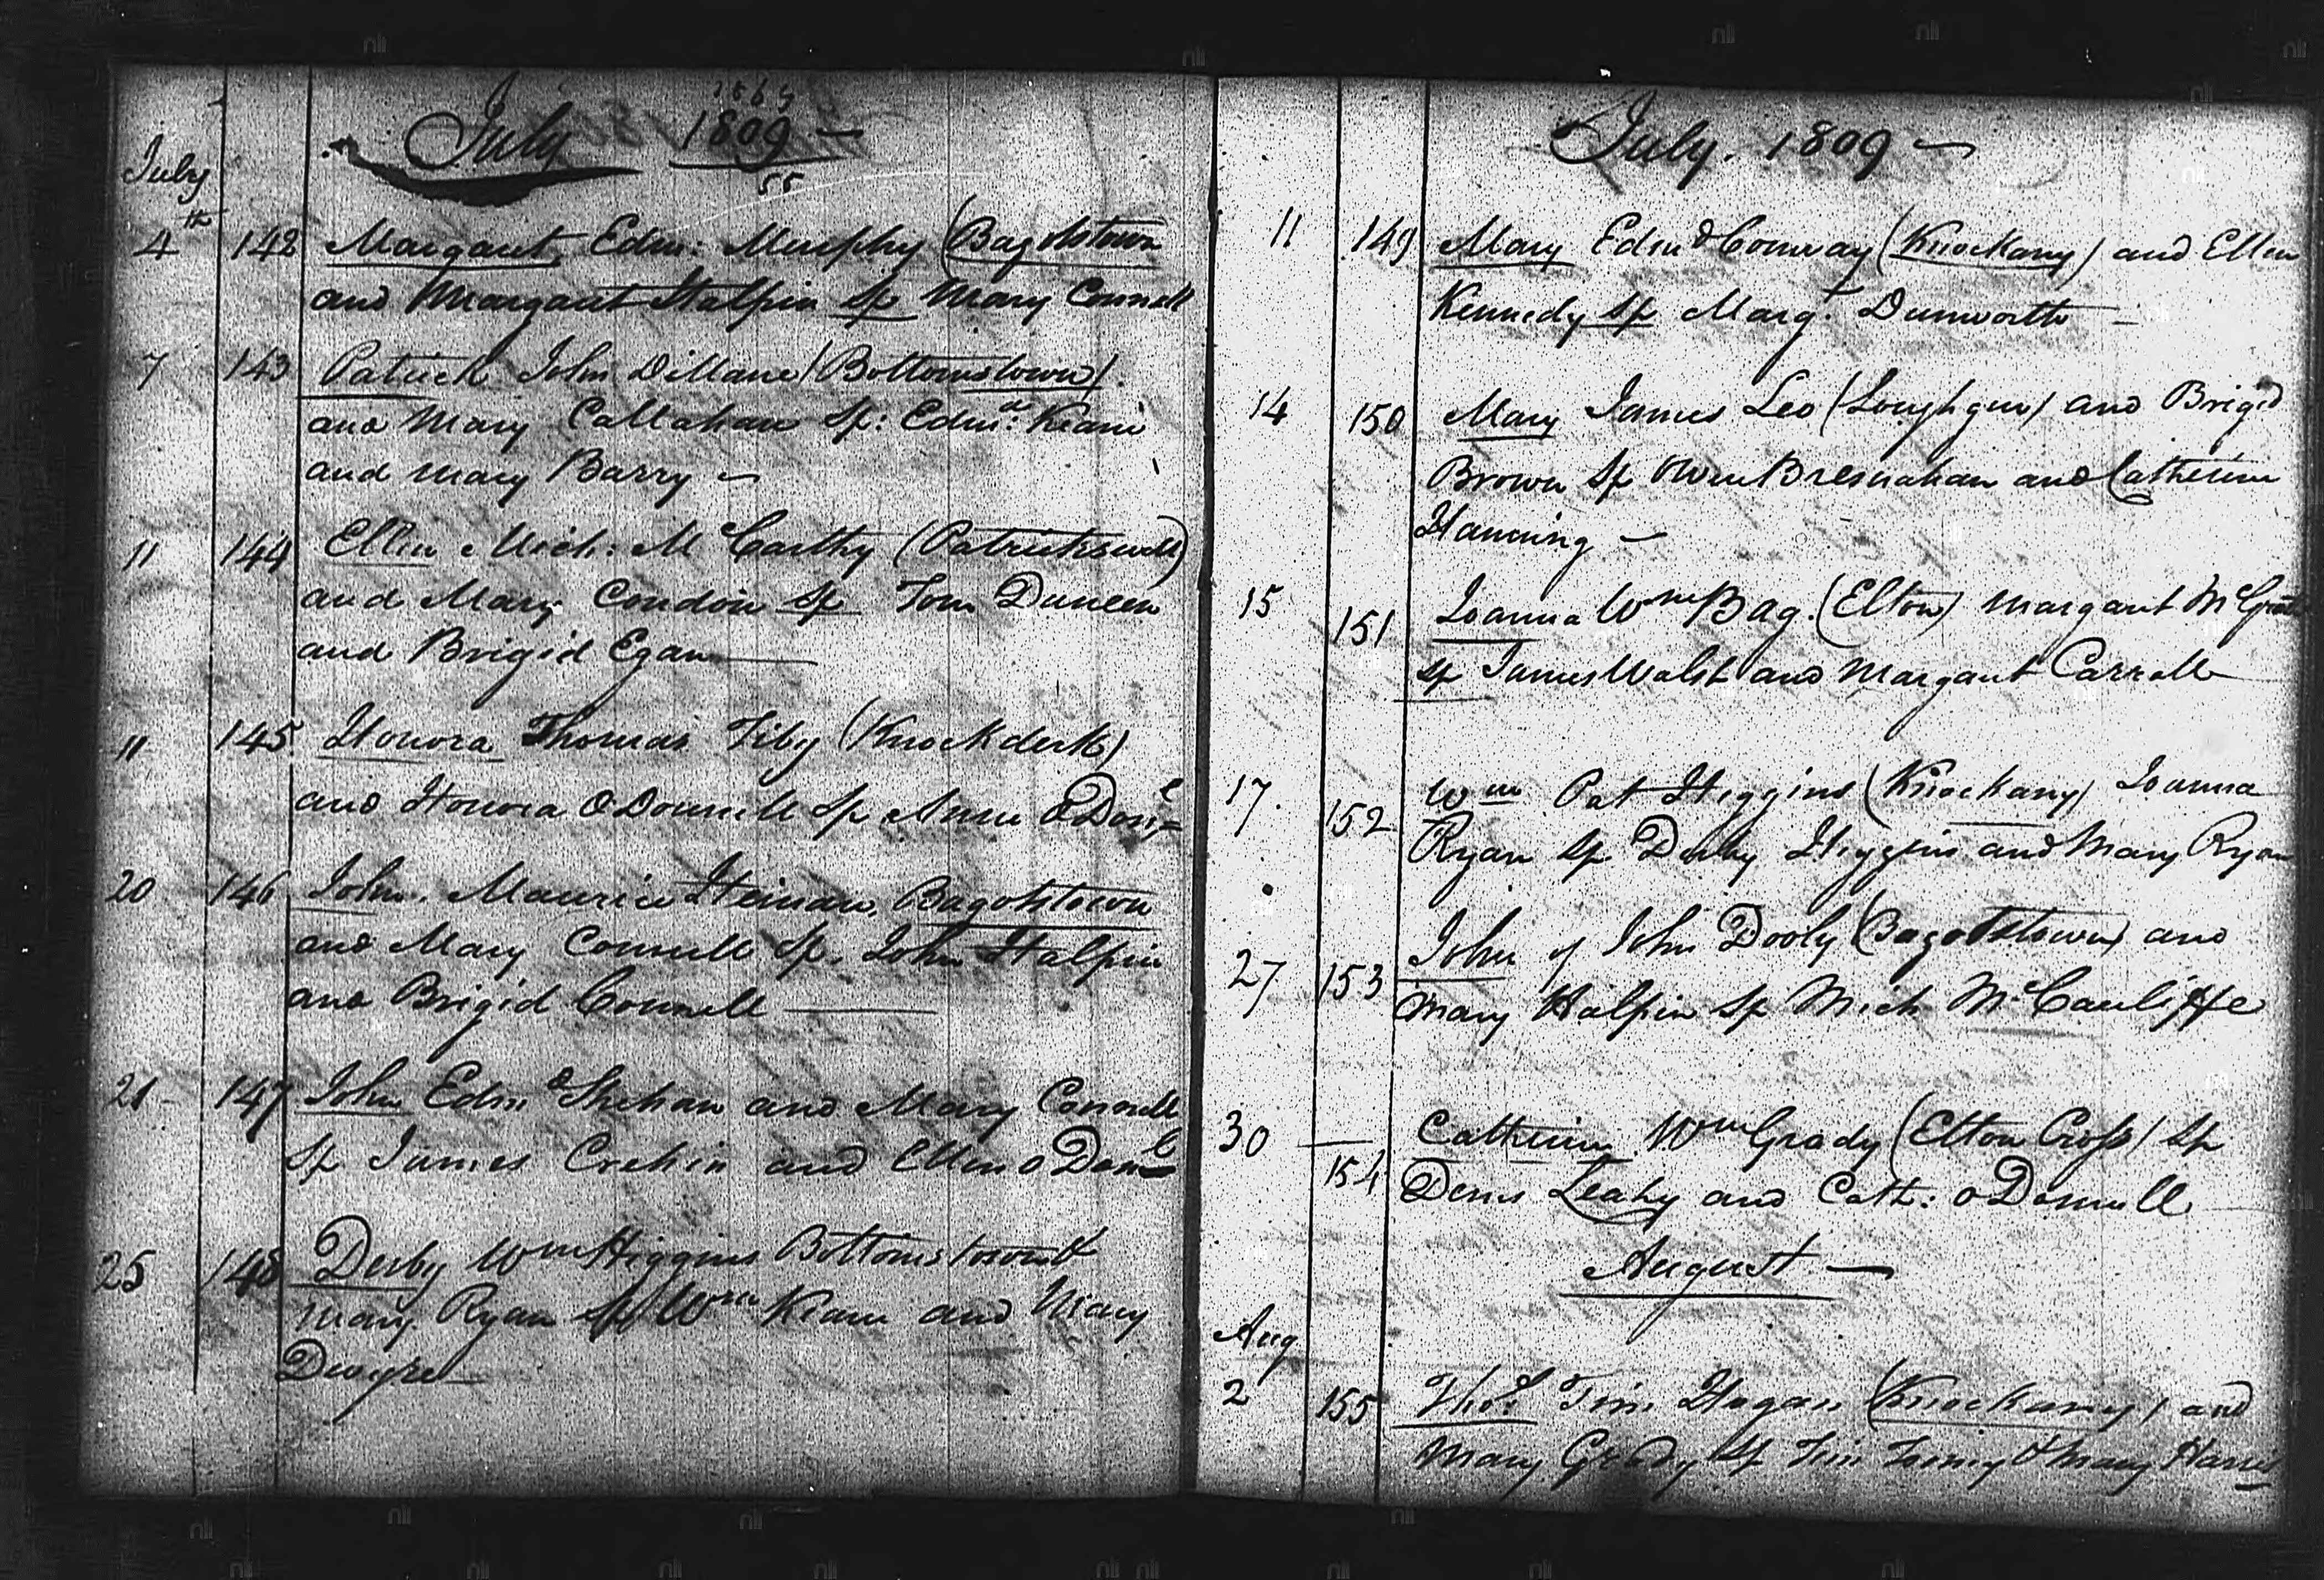 July 1809 —
55
July
4th 142 Margaret Edm: Murphy (Bagotstown
and Margaret Halpin Sp Mary Connell
7 143 Patrick John Dillane (Bottomstown)
and Mary Callahan Sp: Edmd: Keane
and Mary Barry —
11 144 Ellen Mich: McCarthy (Patrickswell)
and Mary Condon Sp Tom Duncen
and Brigid Egan —
11 145 Honora Thomas (Knockderk)
and Honora ODonnell Sp Anne ODonl
20 146 John Maurice Bagotstown
and Mary Connell Sp. John Halpin
and Brigid Connell —
21 147 John Edmd Shehan and Mary Connell
Sp James Crehin and Ellen oDonl
25 148 Derby Wm Higgins Bottomstown &
Mary Ryan Sp Wm Keane and Mary
Dwyre
July. 1809 —
11 149 Mary Edmd Conway (Knockany) and Ellen
Kennedy Sp Margt Dunworth —
14 150 Mary James Leo (Loughgur) and Brigid
Brown Sp Owen Bresnahan and Catherine
Hanning —
15 151 Joanna Wm Bag. (Elton) Margaret McGrath
Sp James Walsh and Margaret Carroll
17. 152 Wm Pat Higgins (Knockany) Joanna
Ryan Sp. Derby Higgins and Mary Ryan
27 153 John of John Dooly (Bagotstown) and
Mary Halpin Sp Mich McCauliffe
30 154 Catherine Wm Grady (Elton Cross) Sp
Denis Leahy and Cath: oDonnell
August —
Aug
2 155 Thos Tim Hogan (Knockany) and
Mary Grady Sp Tim & Mary Harris